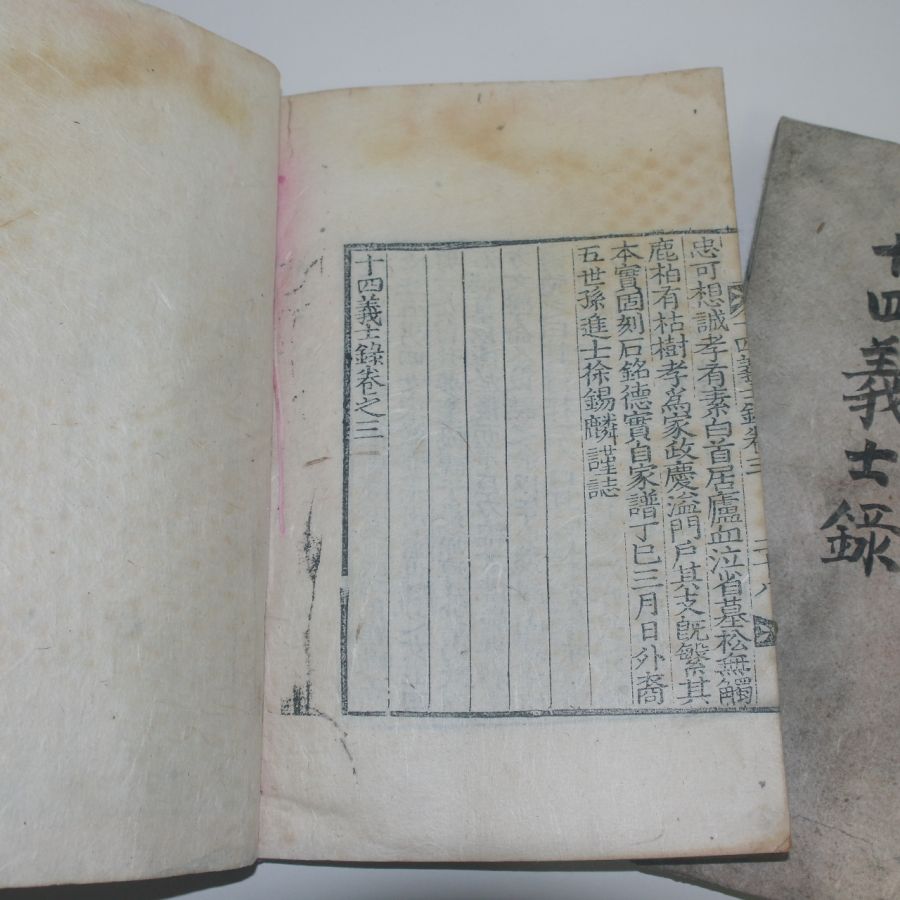 十四義士錄卷三
二十八
忠可想誠孝有素白首居廬血泣省墓松無觸
鹿柏有枯樹孝爲家政慶溢門戶其支旣繁其
本實固刻石銘德實自家譜丁巳三月日外裔
五世孫進士徐錫麟謹誌
十四義士錄卷之三
十四義士錄